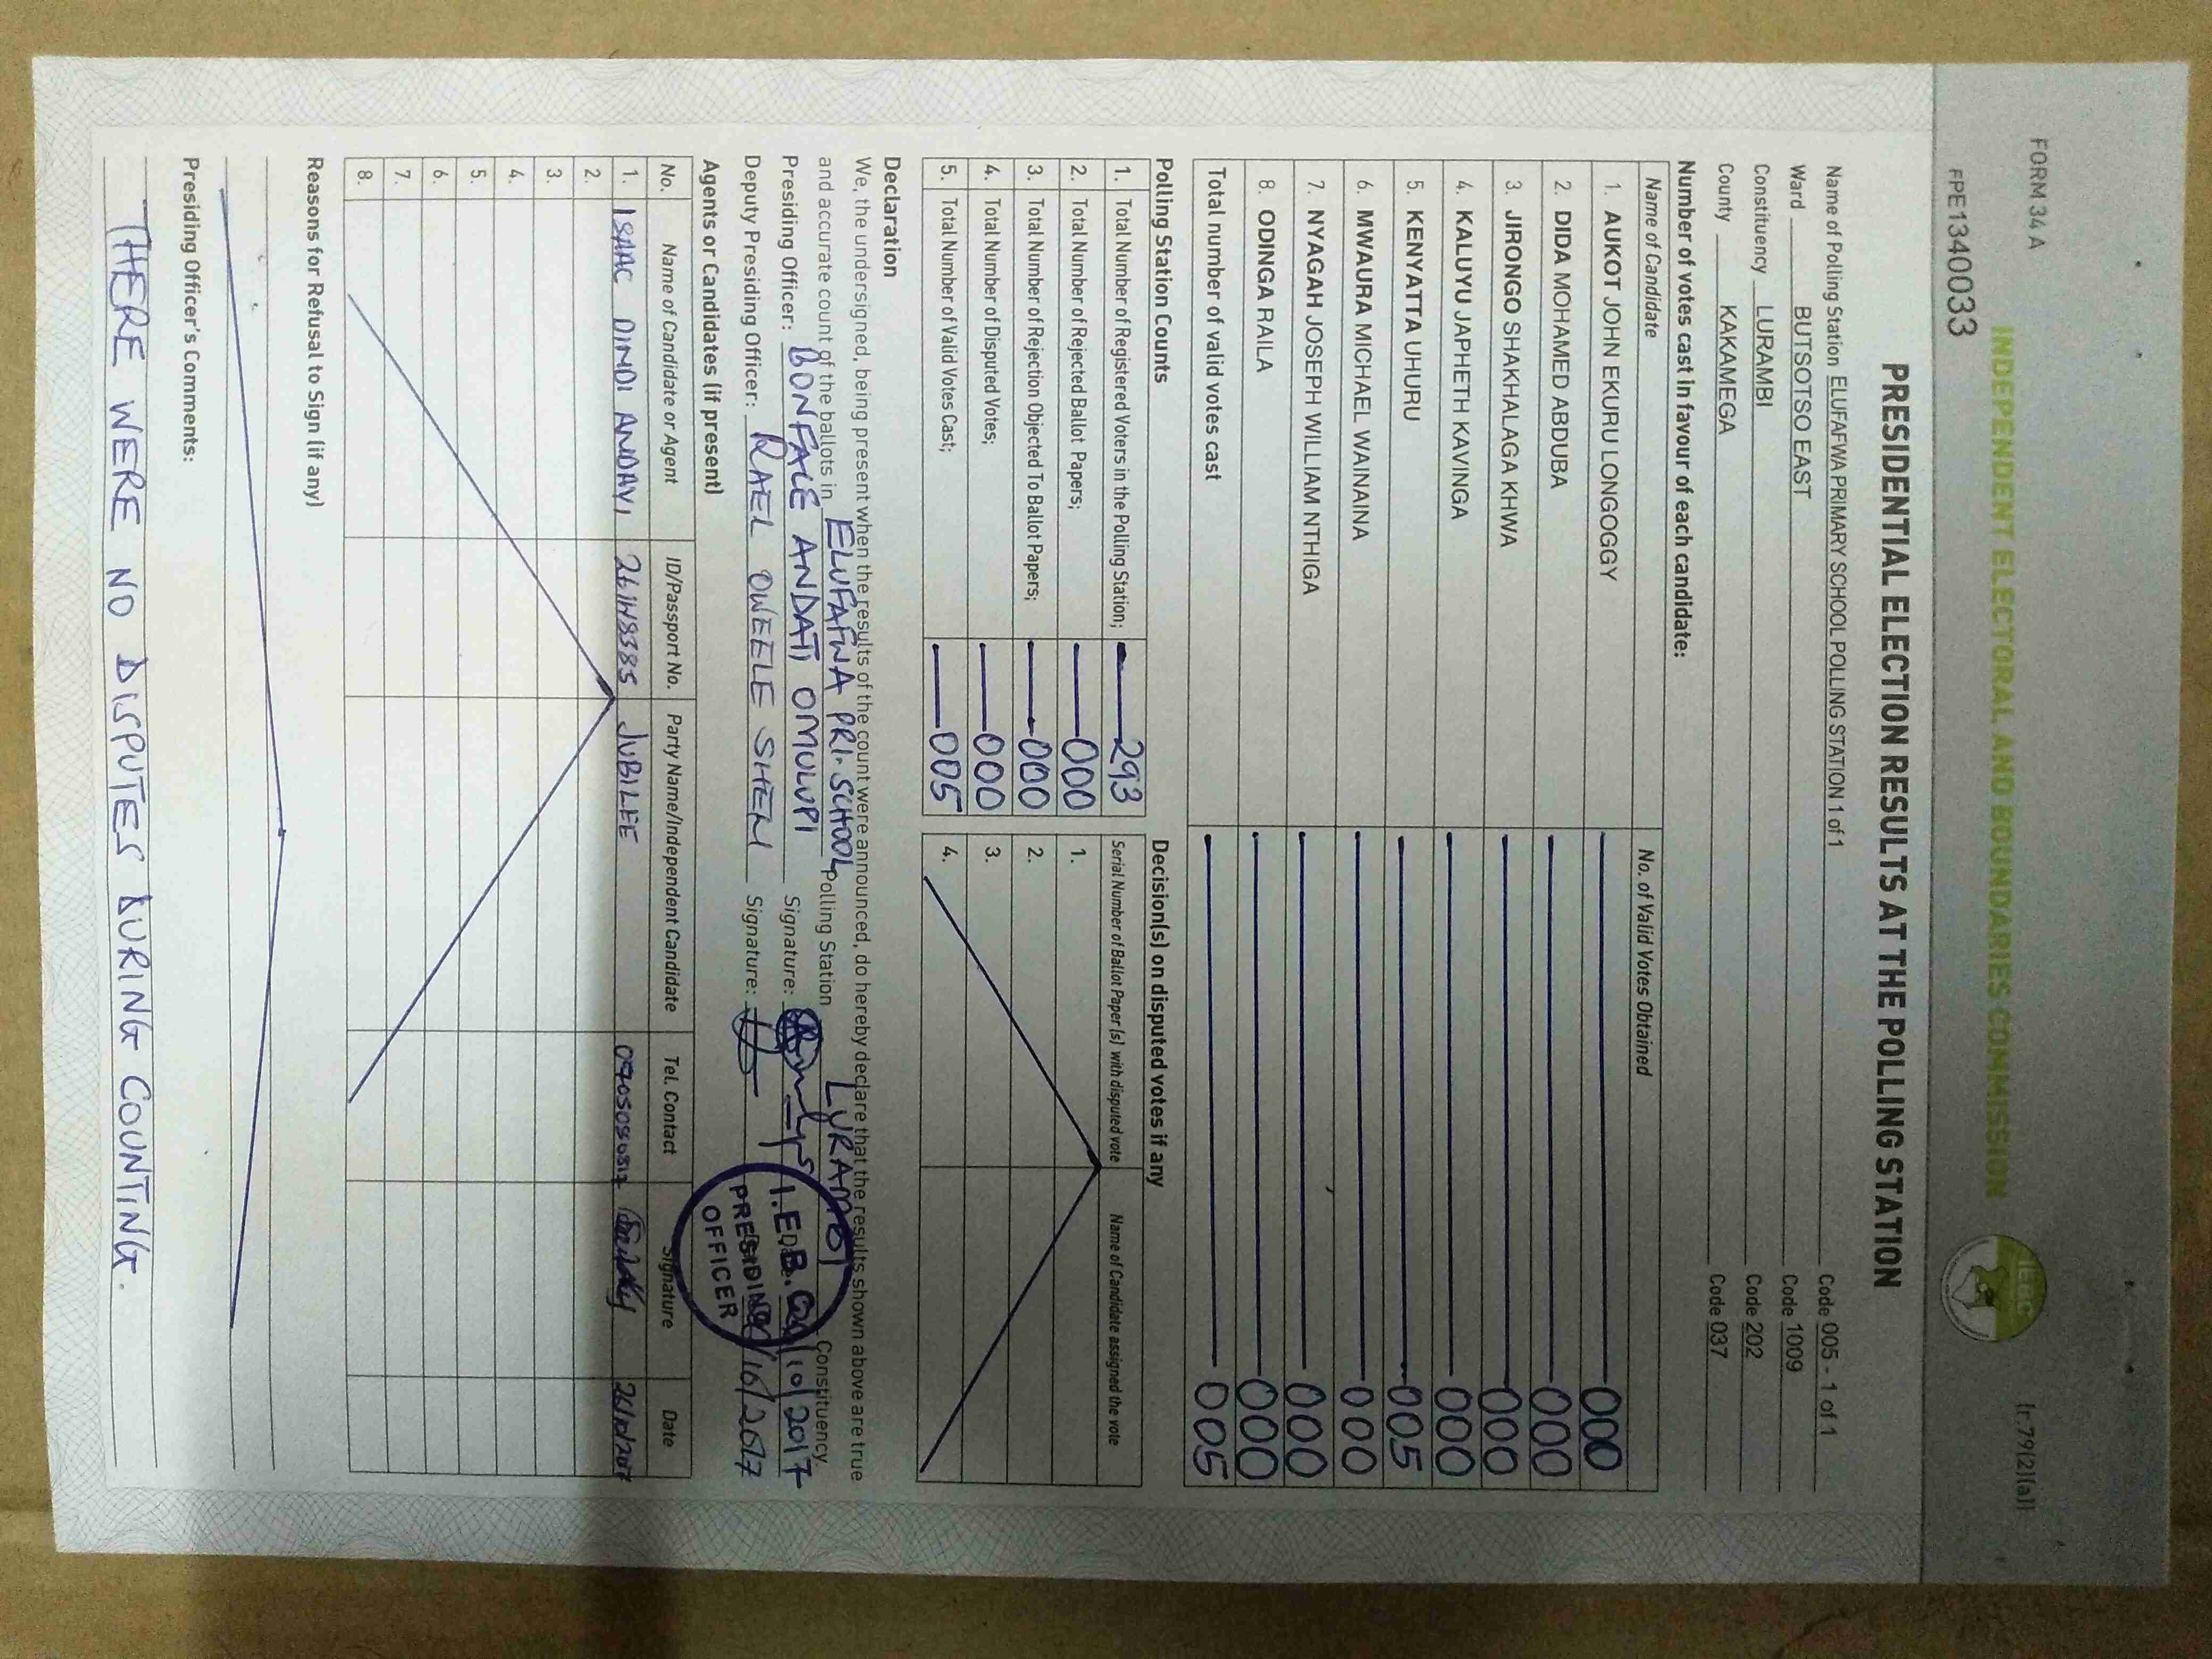 FORM 34A
(r.79(2)(a))
INDEPENDENT ELECTORAL AND BOUNDARIES COMMISSION
IEBC
FPE1340033
PRESIDENTIAL ELECTION RESULTS AT THE POLLING STATION
Name of Polling Station ELUFAFWA PRIMARY SCHOOL POLLING STATION 1 of 1 Code 005 - 1 of 1
Ward BUTSOTSO EAST Code 1009
Constituency LURAMBI Code 202
County KAKAMEGA Code 037
Number of votes cast in favour of each candidate:
Name of Candidate No. of Valid Votes Obtained
1. AUKOT JOHN EKURU LONGOGGY 000
2. DIDA MOHAMED ABDUBA 000
3. JIRONGO SHAKHALAGA KHWA 000
4. KALUYU JAPHETH KAVINGA 000
5. KENYATTA UHURU 005
6. MWAURA MICHAEL WAINAINA 000
7. NYAGAH JOSEPH WILLIAM NTHIGA 000
8. ODINGA RAILA 000
Total number of valid votes cast 005
Polling Station Counts
1. Total Number of Registered Voters in the Polling Station; 293
2. Total Number of Rejected Ballot Papers; 000
3. Total Number of Rejection Objected To Ballot Papers; 000
4. Total Number of Disputed Votes; 000
5. Total Number of Valid Votes Cast; 005
Decision(s) on disputed votes if any
Serial Number of Ballot Paper(s) with disputed vote Name of Candidate assigned the vote
1.
2.
3.
4.
Declaration
We, the undersigned, being present when the results of the count were announced, do hereby declare that the results shown above are true
and accurate count of the ballots in ELUFAFWA PRI. SCHOOL Polling Station LURAMBI Constituency
Presiding Officer: BONFACE ANDATI OMULUPI Signature: /10/2017
Deputy Presiding Officer: RAEL OWEELE SHEM Signature: /10/2017
I.E.B.C
PRESIDING
OFFICER
Agents or Candidates (if present)
No. Name of Candidate or Agent ID/Passport No. Party Name/Independent Candidate Tel. Contact Signature Date
1. ISAAC DINDI ANDAYI JUBILEE 26/10/2017
2.
3.
4.
5.
6.
7.
8.
Reasons for Refusal to Sign (if any)
Presiding Officer's Comments:
THERE WERE NO DISPUTES DURING COUNTING.